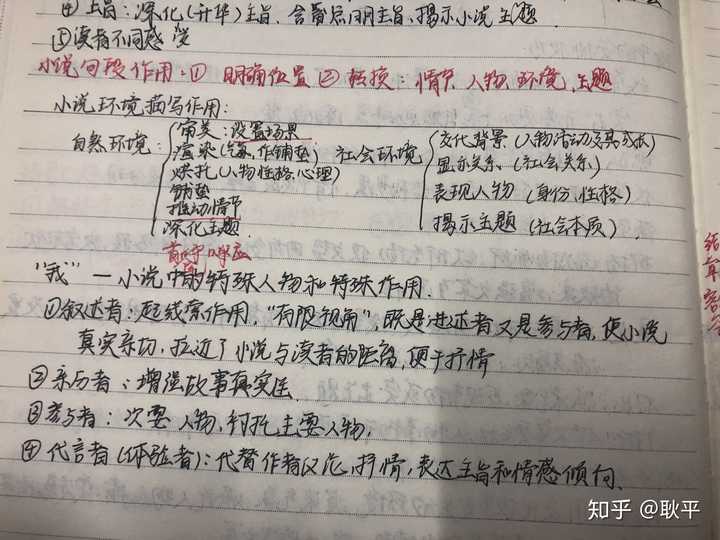 ④主旨：深化(升华)主旨，含蓄点明主旨，揭示小说主题
⑤读者不同感受
小说句段作用：① 明确位置 ② 转换：情节 人物 环境 主题
小说环境描写作用：
自然环境：
审美：设置场景
渲染(气氛，作铺垫)
烘托(人物性格心理)
铺垫
推动情节
深化主题
首尾呼应
社会环境
交代背景(人物活动及其成长)
显示关系(社会关系)
表现人物(身份、性格)
揭示主题(社会本质)
"我"—小说中的特殊人物和特殊作用.
①叙述者：起线索作用，"有限视角"，既是讲述者又是参与者，使小说
真实亲切，拉近了小说与读者的距离，便于抒情
②亲历者：增强故事真实性
③参与者：次要人物，衬托主要人物，
④代言者(体验者)：代替作者议论，抒情，表达主旨和情感倾向、
结
章
知乎 @耿平